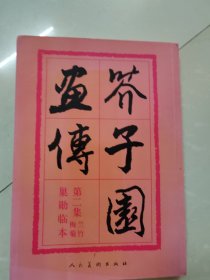 芥子園
畫傳
第二集 兰竹
梅菊
巢勋临本
人民美术出版社